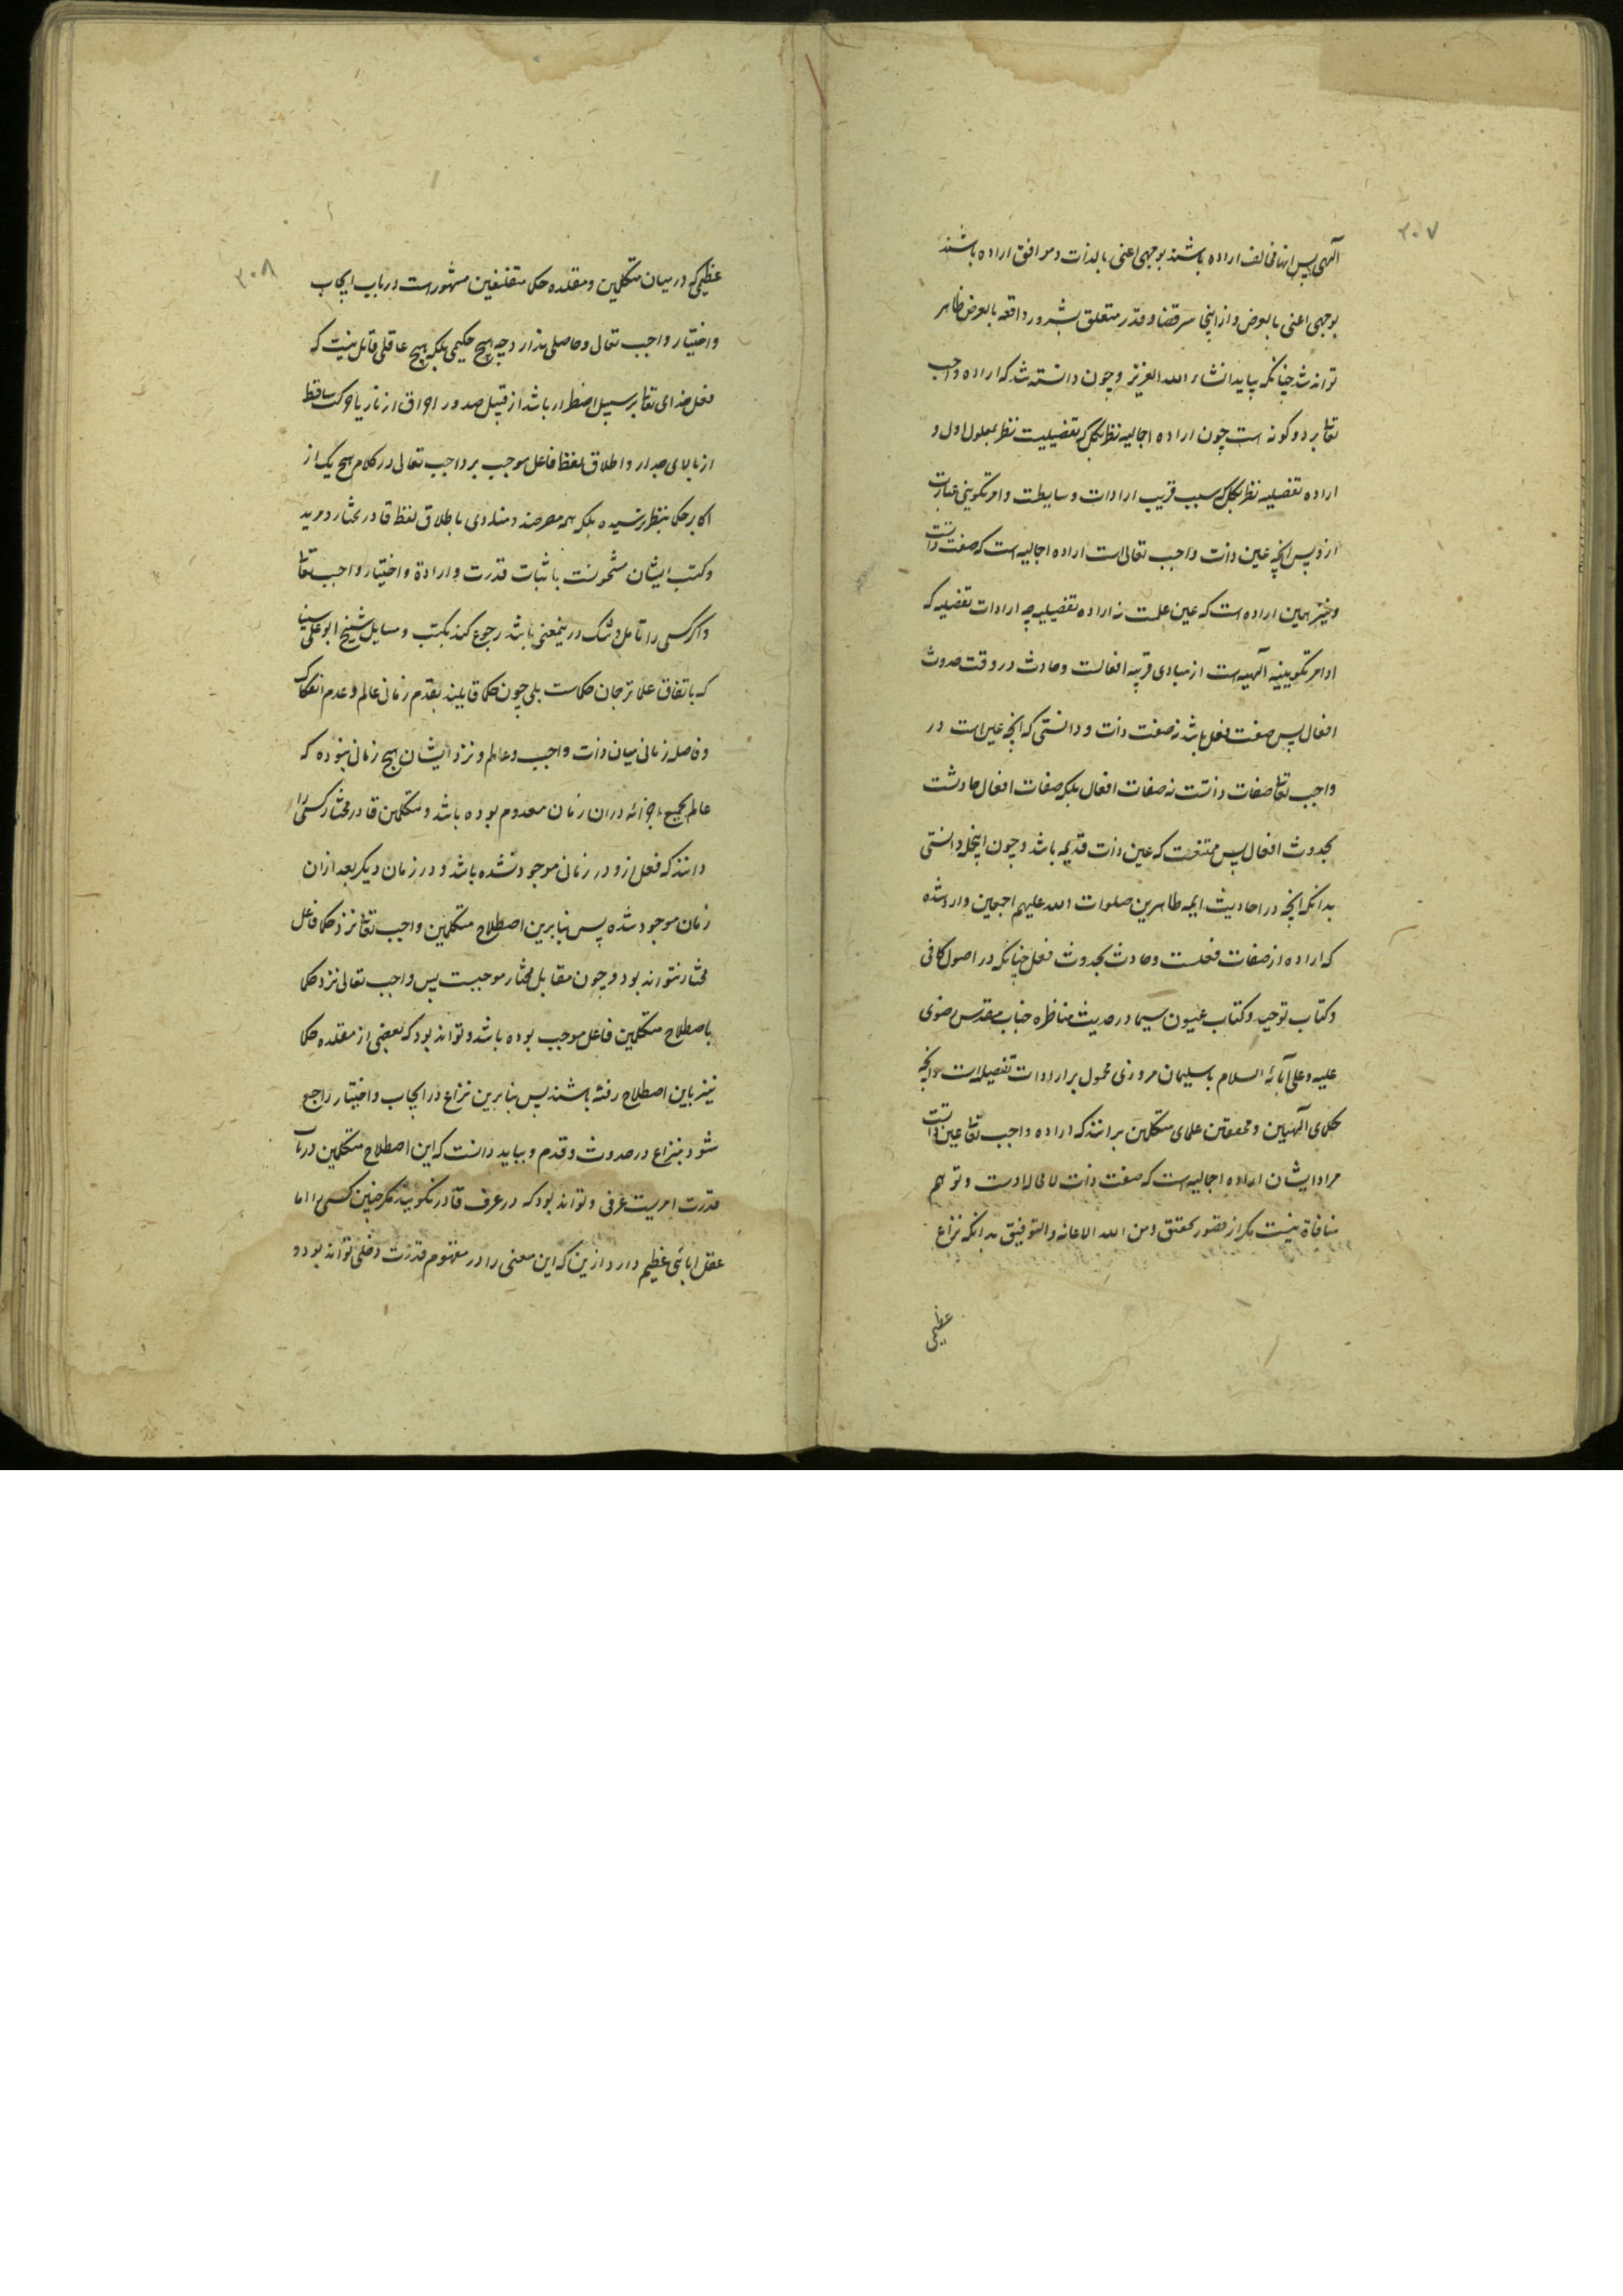 ۳۰۷
آلهی پس اینها مخالف اراده باشند بوجهی اعنی بالذات و موافق اراده باشند
بوجهی اعنی بالعرض و از اینجا سر قضا و قدر متعلق بشرور واقعه بالعرض ظاهر
تواند شد چنانکه بیاید انشاء الله العزیز و چون دانسته شد که اراده واجب
تعالی بر دو گونه است چون اراده اجمالیه نظر بکل که تفضیلیت نظر بمعلول اول و
اراده تفضیلیه نظر بکل که سبب قریب ارادات و سایطت و امر تکوینی عبارت
ازوست پس آنچه عین ذات واجب تعالی است اراده اجمالیه است که صفت ذاتست
و نیز همین اراده است که عین علمت نه اراده تفضیلیه چه ارادات تفضلیه که
اوامر تکوینیه آلهیه است از مبادی قریبه افعالت و حادث در وقت حدوث
افعال پس صفت فعل باشد نه صفت ذات و دانستی که آنچه عین است در
واجب تعالی صفات ذاتست نه صفات افعال بلکه صفات افعال حادثست
بحدوث افعال پس ممتنعست که عین ذات قدیمه باشد و چون اینجمله دانستی
بدانکه آنچه در احادیث ایمه طاهرین صلوات الله علیهم اجمعین وارد شده
که اراده از صفات فعلست و حادث بحدوث فعل چنانکه در اصول کافی
و کتاب توحید و کتاب عیون سیما در حدیث مناظره جناب مقدس رضوی
علیه و علی آبائه السلام با سلیمان مروزی محمول بر ارادات تفصیله است و آنچه
حکمای آلهیین و محققین علمای متکلمین برانند که اراده واجب تعالی عین ذاتست
مراد ایشان اراده اجمالیه است که صفت ذات لا محاله ذاتست و توهم
منافاة نیست مگر از قصور تحقق و من الله الاعانه و التوفیق بدانکه نزاع
عظیمی
۳۰۸
عظیمی که در میان متکلمین و مقلده حکما متفلسفین مشهور است در باب ایجاب
و اختیار واجب تعالی و حاصلی ندارد چه هیچ حکیمی بلکه هیچ عاقلی قائل نیست که
فعل خدای تعالی بر سبیل اضطرار باشد از قبیل صدور احراق از نار یا حرکت ساقط
از بالای جدار و اطلاق لفظ فاعل موجب بر واجب تعالی در کلام هیچ یک از
اکابر حکما بنظر نرسیده بلکه همه مصرحند و منادی باطلاق لفظ قادر مختار و مرید
و کتب ایشان مشحونست باثبات قدرت و ارادة و اختیار واجب تعالی
و اگر کسی را تامل و شک درینمعنی باشد رجوع کند بکتب و مسایل شیخ ابو علی سینا
که باتفاق علما ترجمان حکماست بلی چون حکما قایلند بقدم زمانی عالم و عدم انفکاک
و فاصله زمانی میان ذات واجب و عالم و نزد ایشان هیچ زمانی نبوده که
عالم بجمیع اجزائه دران زمان معدوم بوده باشد و متکلمین قادر مختار کسی را
دانند که فعل ازو در زمانی موجود نشده باشد و در زمان دیگر بعد ازان
زمان موجود شده پس بنابرین اصطلاح متکلمین واجب تعالی نزد حکما فاعل
مختار نتواند بود و چون مقابل مختار موجبست پس واجب تعالی نزد حکما
باصطلاح متکلمین فاعل موجب بوده باشد و تواند بود که بعضی از مقلده حکما
نیز باین اصطلاح رفته باشند پس بنابرین نزاع در ایجاب و اختیار راجع
شود بنزاع در حدوث و قدم و بباید دانست که این اصطلاح متکلمین در باب
قدرت امریست عرفی و تواند بود که در عرف قادر نگویند مگر چنین کسی را اما
عقل ابائی عظیم دارد ازین که این معنی را در مفهوم قدرت دخلی تواند بود و